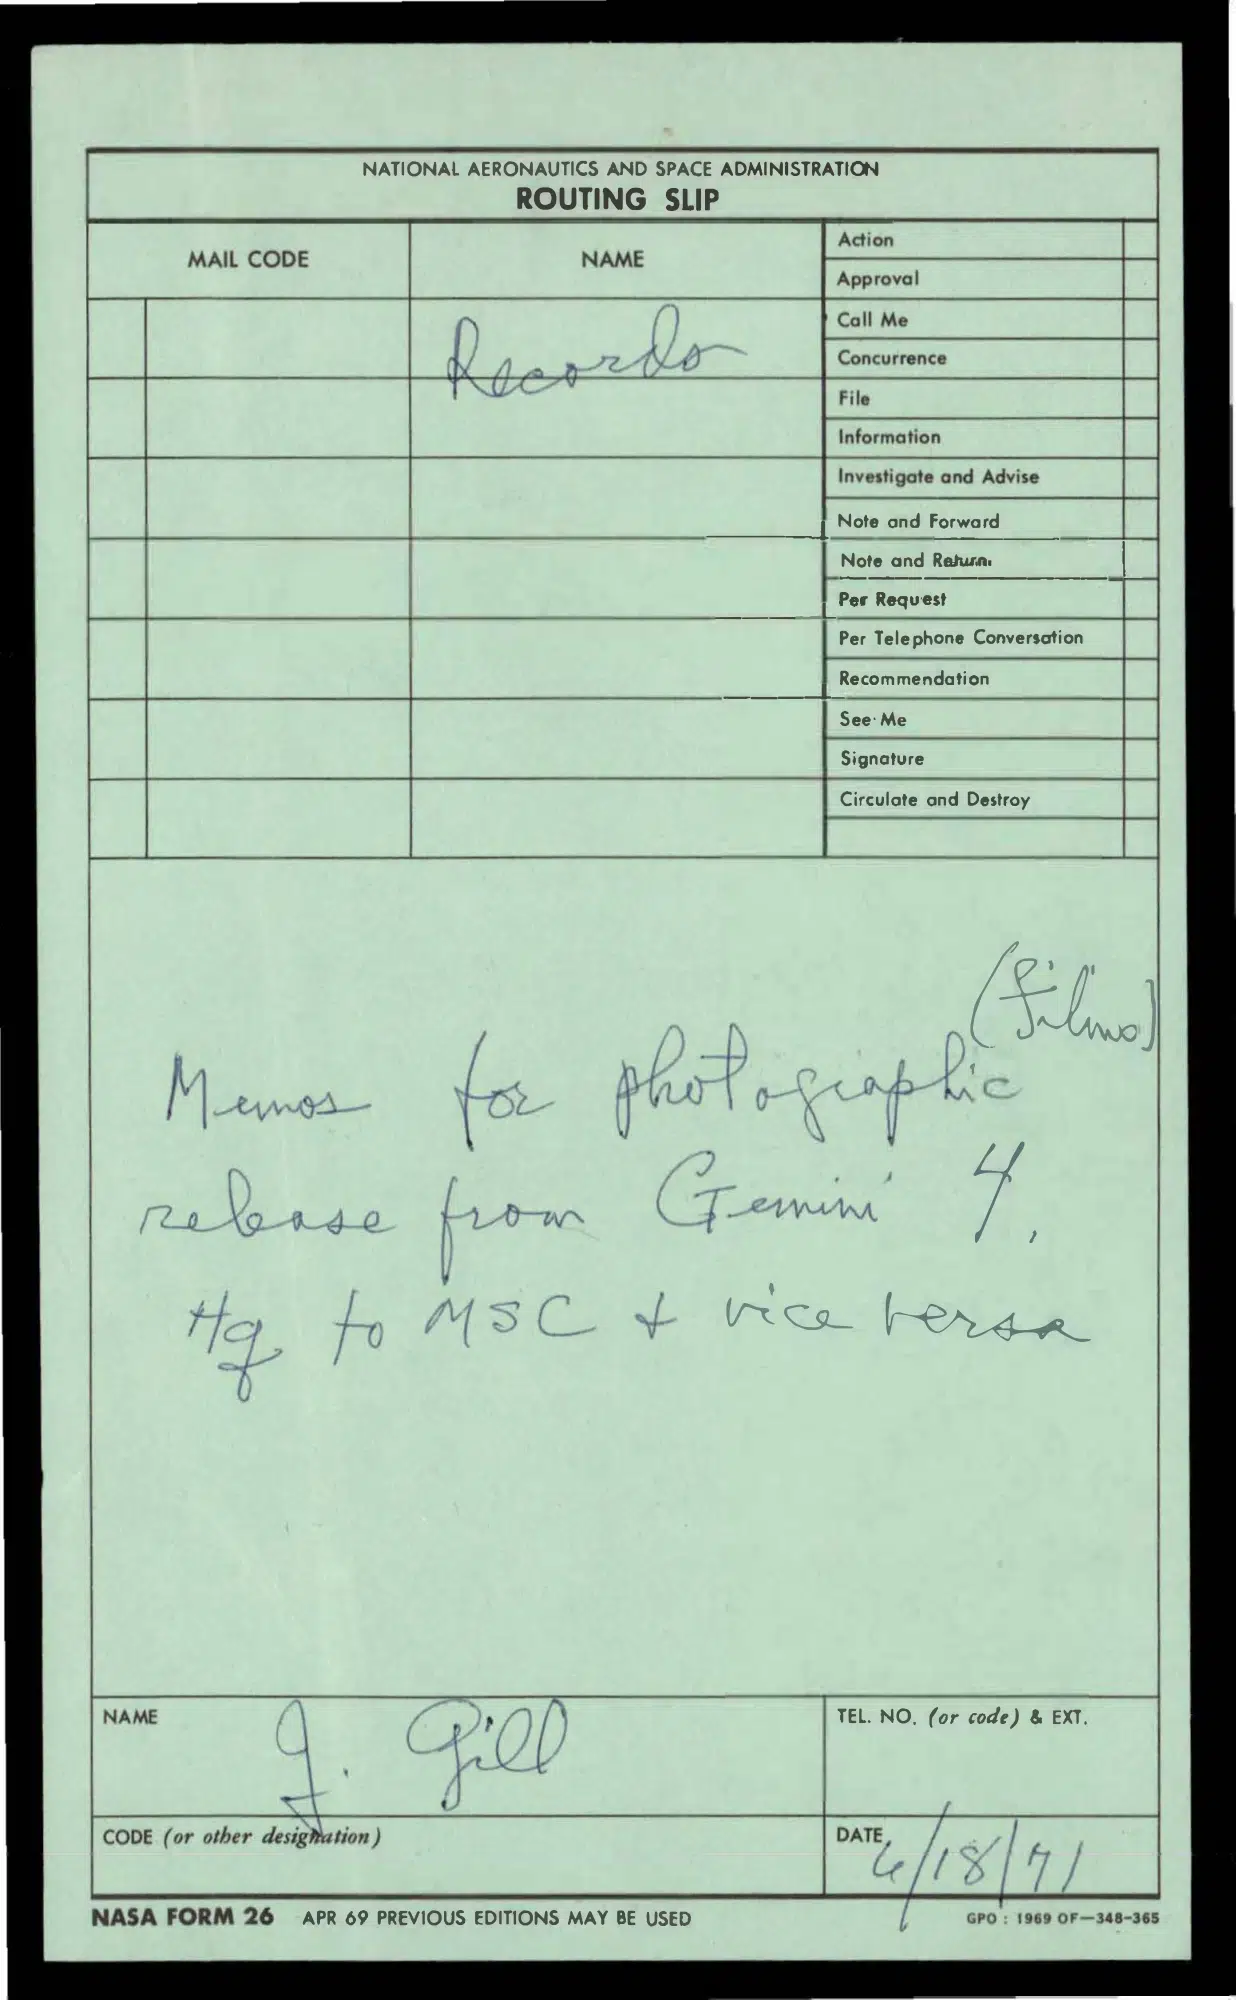 NATIONAL AERONAUTICS AND SPACE ADMINISTRATION
ROUTING SLIP
MAIL CODE
NAME
Records
Action
Approval
Call Me
Concurrence
File
Information
Investigate and Advise
Note and Forward
Note and Return
Per Request
Per Telephone Conversation
Recommendation
See Me
Signature
Circulate and Destroy
(Films)
Memos for photographic
release from Gemini 4,
Hq to MSC + vice versa
NAME
J. Gill
TEL. NO. (or code) & EXT.
CODE (or other designation)
DATE
6/18/71
NASA FORM 26 APR 69 PREVIOUS EDITIONS MAY BE USED
GPO : 1969 OF—348-365